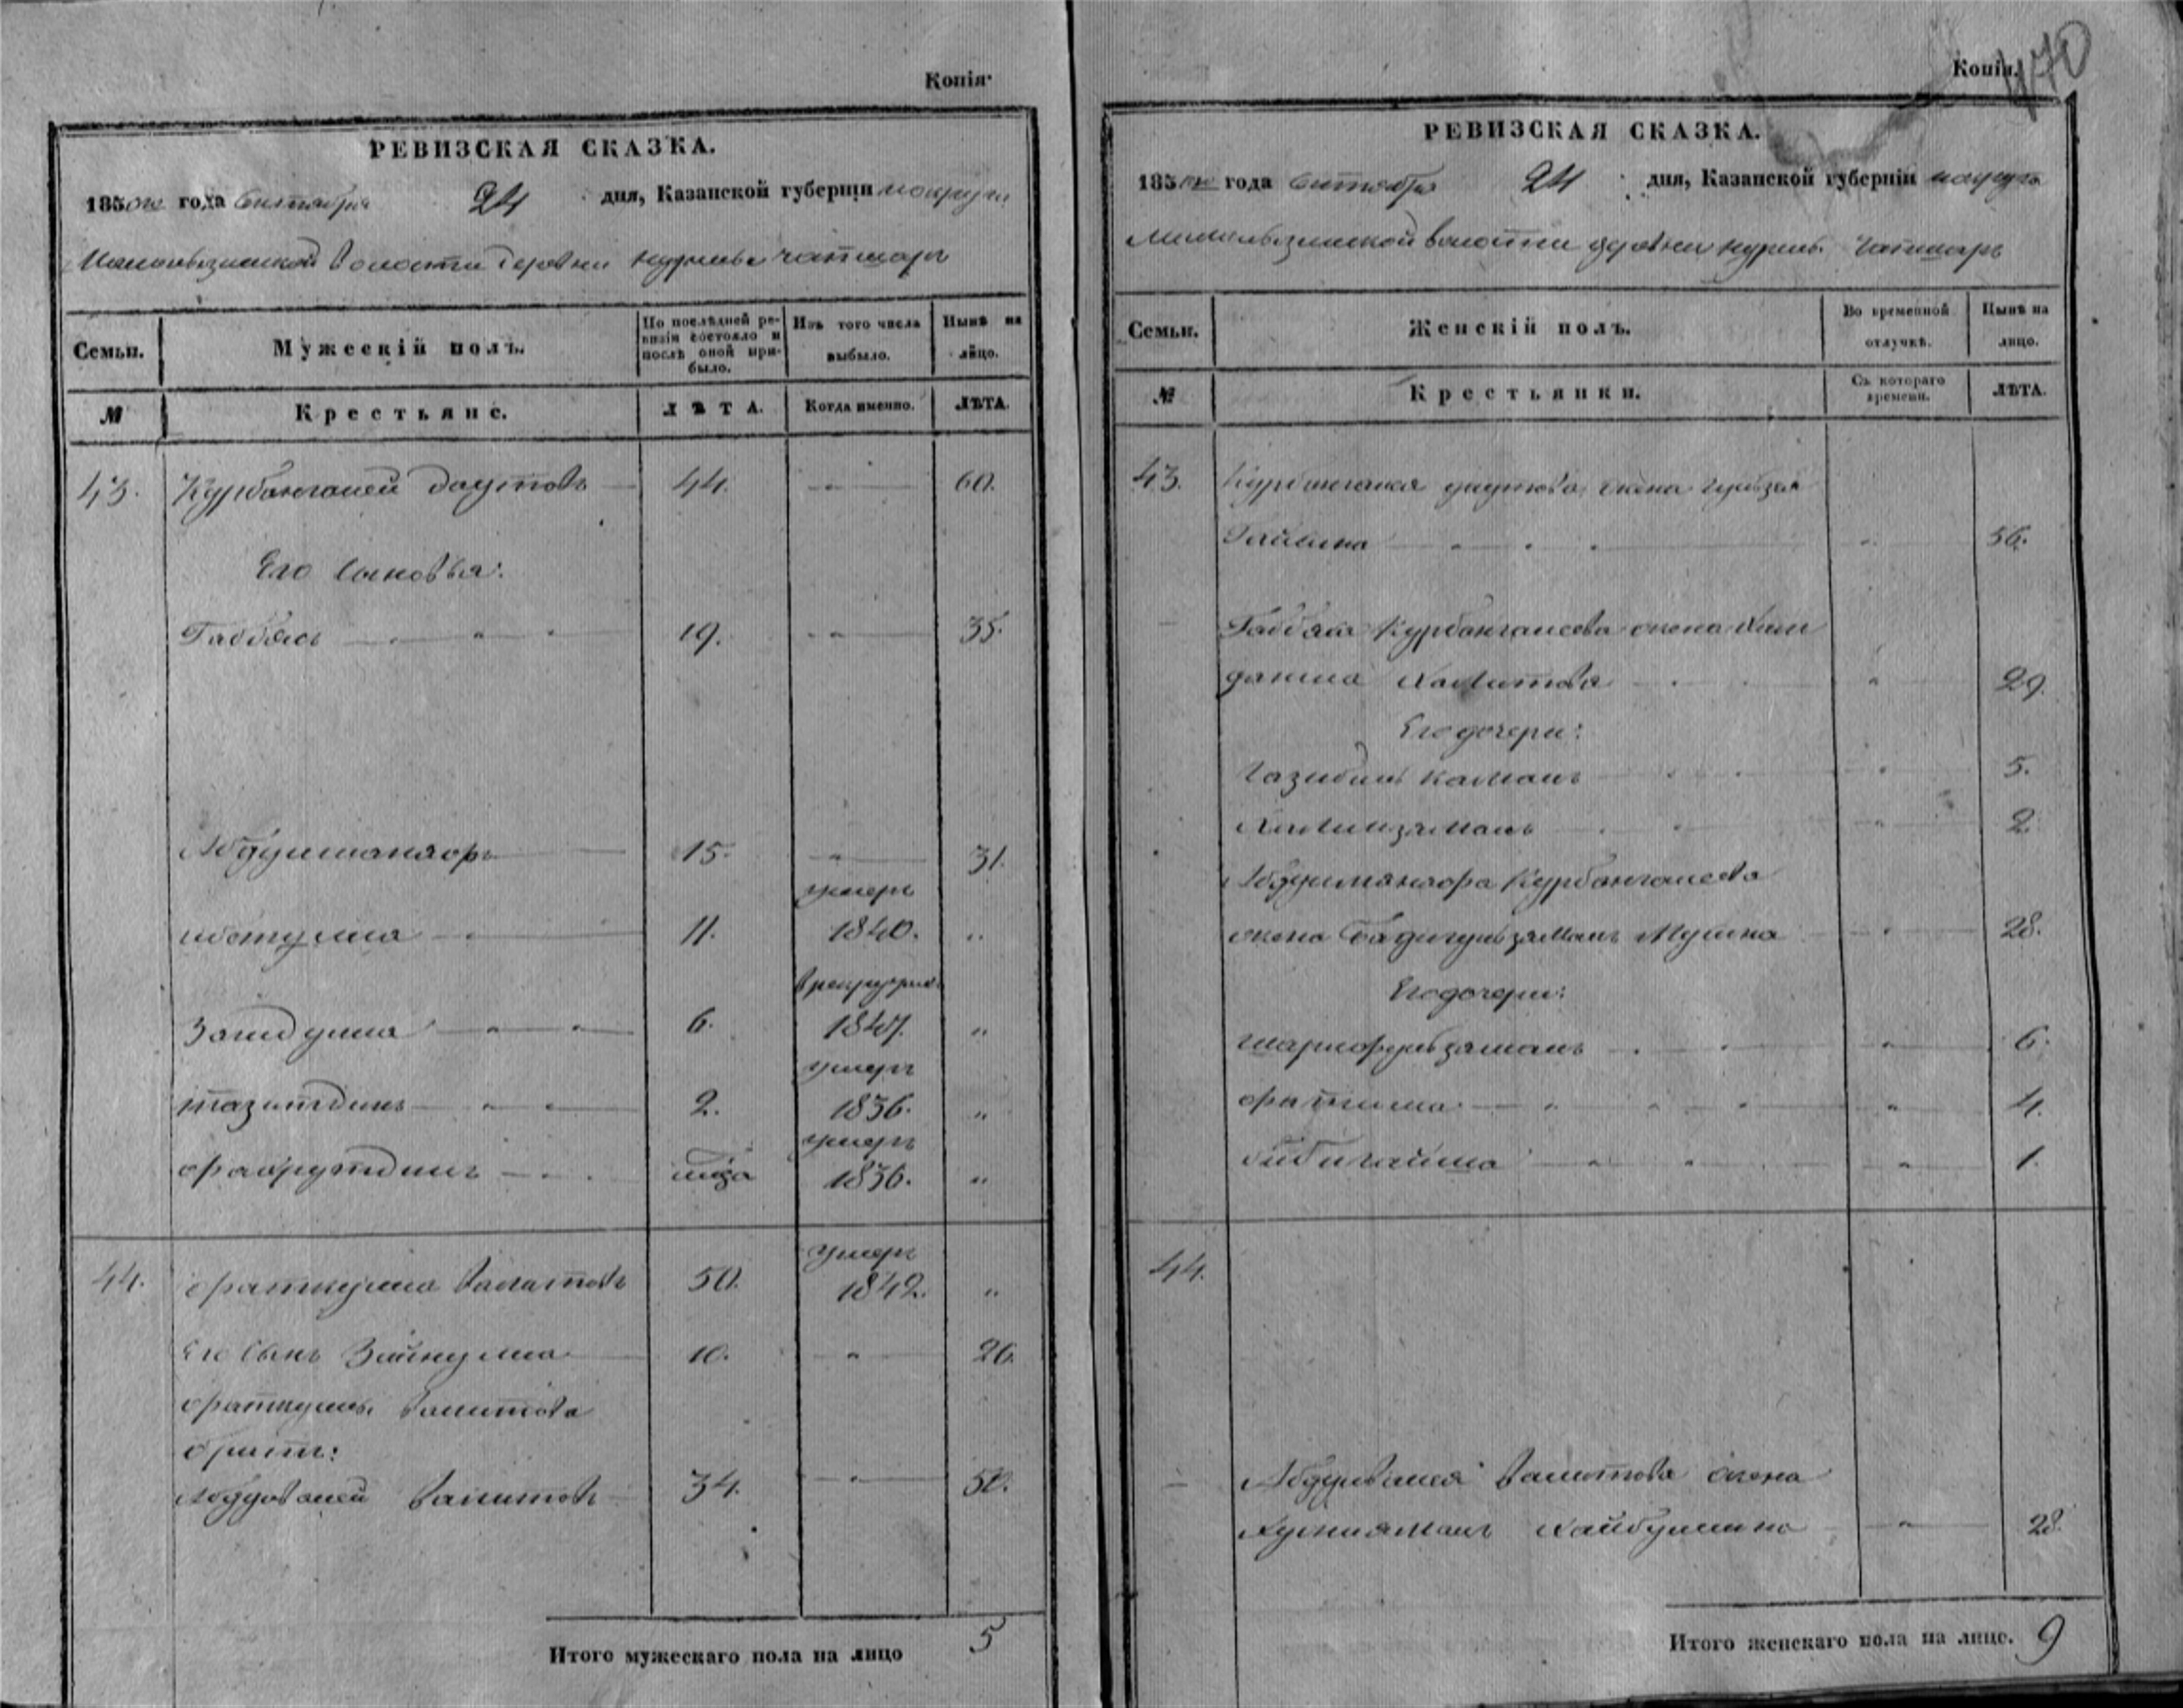 Копія.
РЕВИЗСКАЯ СКАЗКА.
1850го года Октября 24 дня, Казанской губерніи
волости деревни Чапшаръ
Семьи. Мужескій полъ. По послѣдней ревизіи состояло и послѣ оной прибыло. Изъ того числа выбыло. Нынѣ на лицо.
№ Крестьяне. ЛѢТА. Когда именно. ЛѢТА.
43. Курбангалей Даутовъ 44. 60.
Его сыновья:
Габбясъ 19. 35.
Абдулманнафъ 15. 31.
умеръ
11. 1840.
в рекрутахъ
Загидулла 6. 1847.
умеръ
Тазитдинъ 2. 1836.
умеръ
Фахрутдинъ нѣд. 1836.
умеръ
44. Фаткулла Валитовъ 50. 1842.
Его сынъ Зайнулла 10. 26.
Фаткуллы Валитова
братъ:
Абдулвалей Валитовъ 34. 50.
Итого мужескаго пола на лицо 5
470
Копія.
РЕВИЗСКАЯ СКАЗКА.
1850го года Октября 24 дня, Казанской губерніи
волости деревни Чапшаръ
Семьи. Женскій полъ. Во временной отлучкѣ. Нынѣ на лицо.
№ Крестьянки. Съ котораго времени. ЛѢТА.
43. Курбангалея Даутова жена
56.
Габбяса Курбангалеева жена
Хамитова 29.
Его дочери:
камалъ 5.
2.
Абдулманнафа Курбангалеева
жена Бадигульзаманъ Мусина 28.
Его дочери:
Шарифульзаманъ 6.
Фатима 4.
Бибигайша 1.
44.
Абдулвалея Валитова жена
Хуснизаманъ Хайбуллина 28.
Итого женскаго пола на лицо. 9